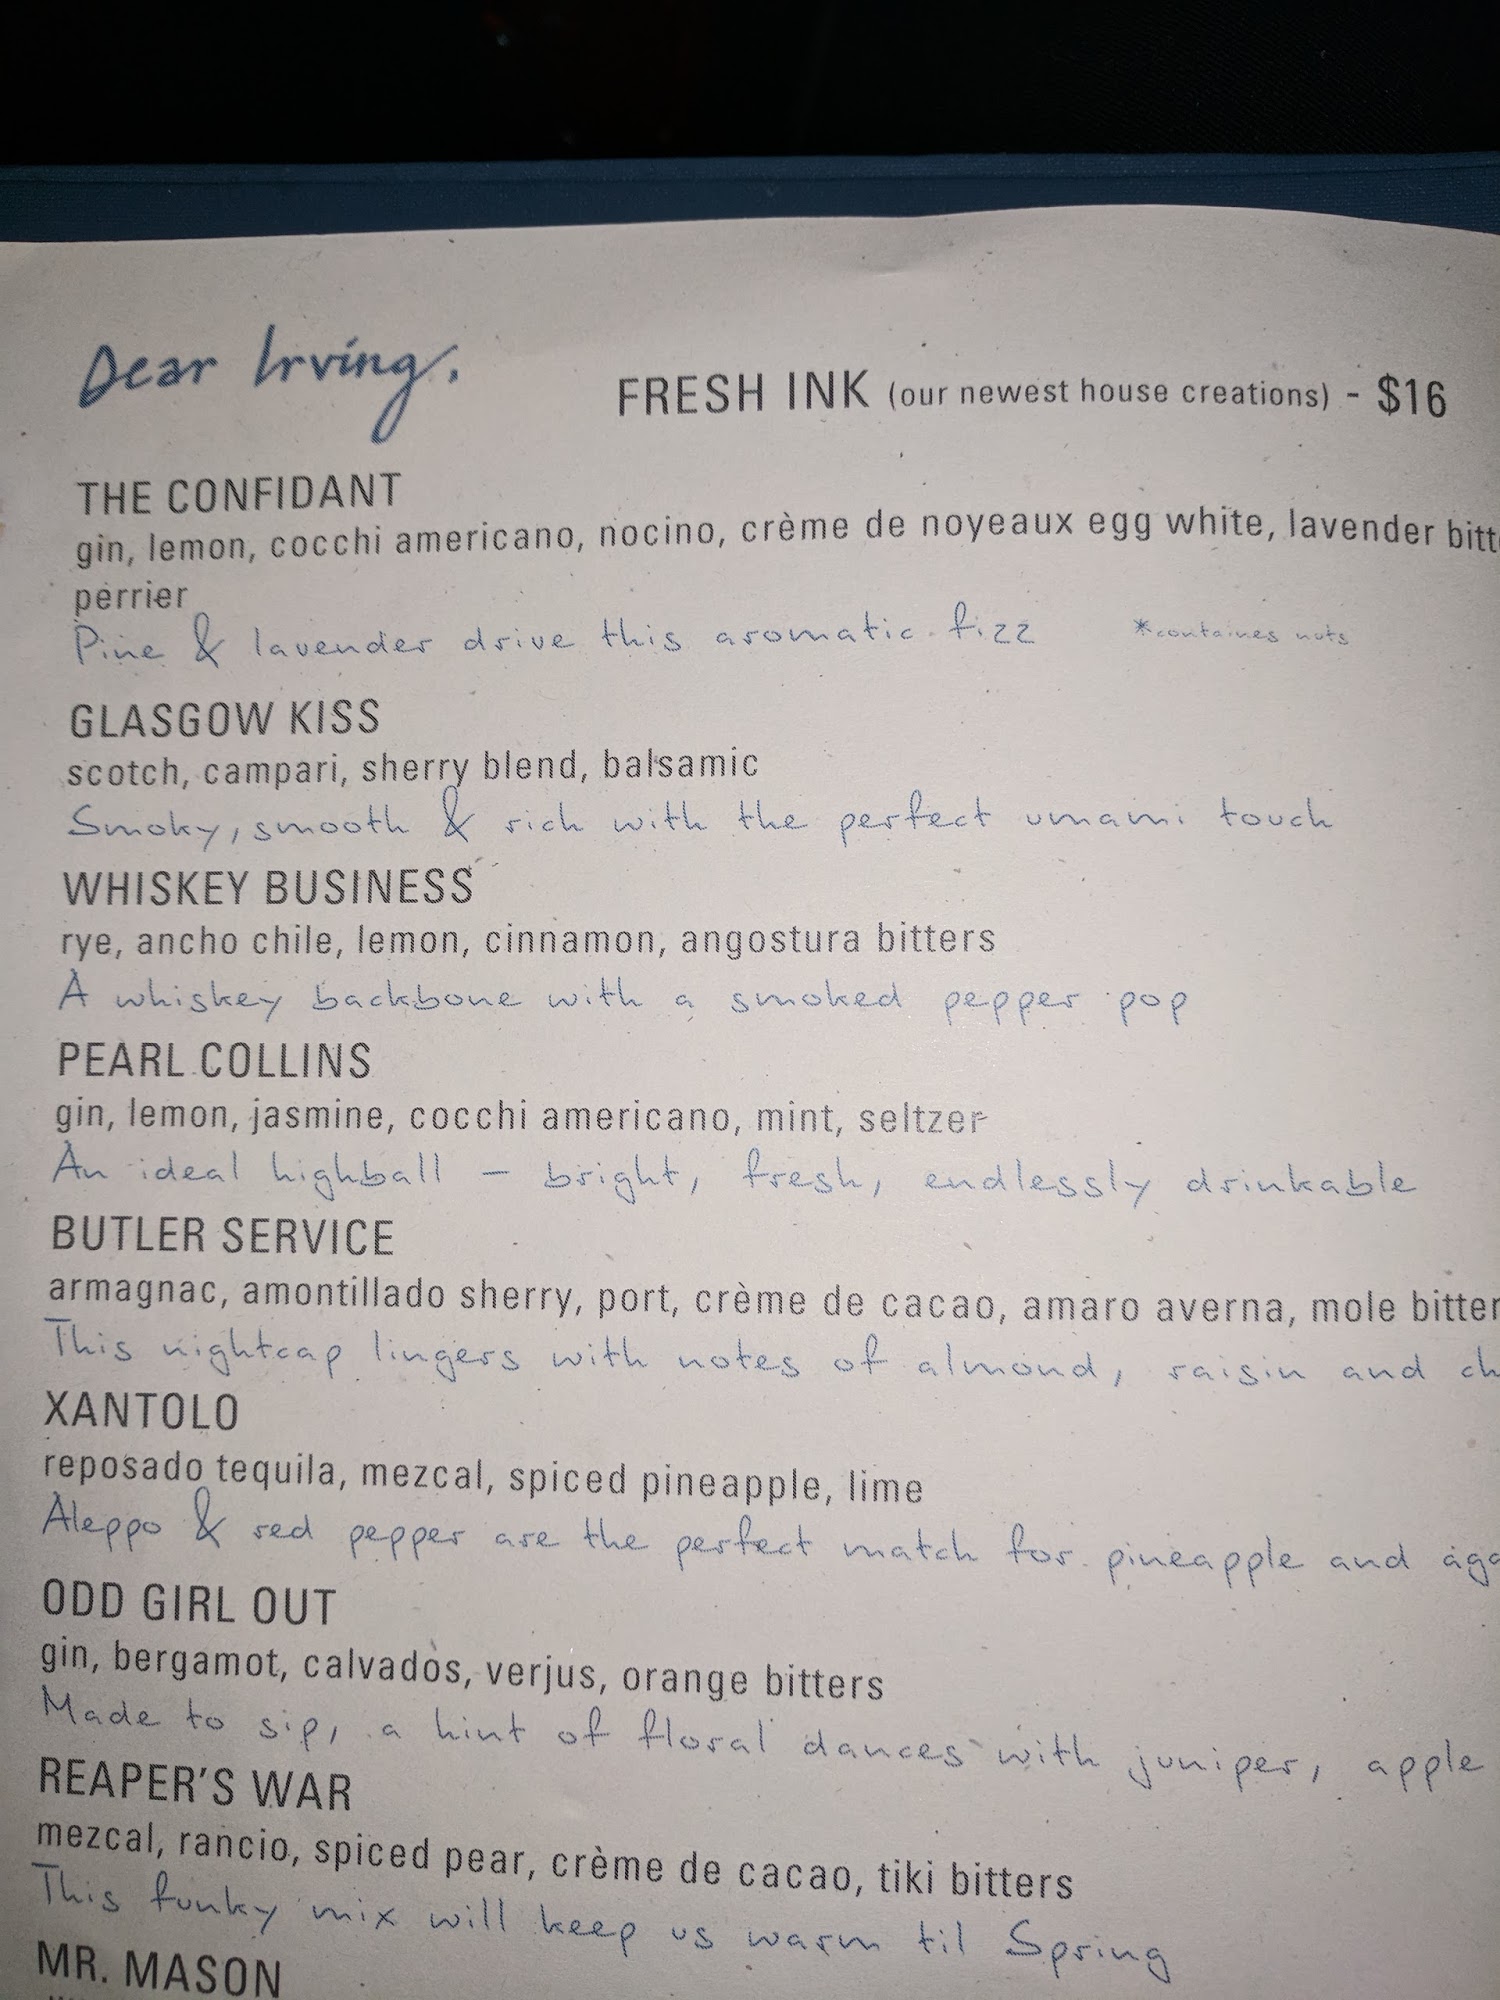 Dear Irving,
FRESH INK (our newest house creations) - $16
THE CONFIDANT
gin, lemon, cocchi americano, nocino, crème de noyeaux egg white, lavender
perrier
Pine & lavender drive this aromatic fizz *containes nuts
GLASGOW KISS
scotch, campari, sherry blend, balsamic
Smoky, smooth & rich with the perfect umami touch
WHISKEY BUSINESS
rye, ancho chile, lemon, cinnamon, angostura bitters
A whiskey backbone with a smoked pepper pop
PEARL COLLINS
gin, lemon, jasmine, cocchi americano, mint, seltzer
An ideal highball – bright, fresh, endlessly drinkable
BUTLER SERVICE
armagnac, amontillado sherry, port, crème de cacao, amaro averna, mole bitter
This nightcap lingers with notes of almond, raisin and
XANTOLO
reposado tequila, mezcal, spiced pineapple, lime
Aleppo & red pepper are the perfect match for pineapple and
ODD GIRL OUT
gin, bergamot, calvados, verjus, orange bitters
Made to sip, a hint of floral dances with juniper, apple
REAPER'S WAR
mezcal, rancio, spiced pear, crème de cacao, tiki bitters
This funky mix will keep us warm til Spring
MR. MASON